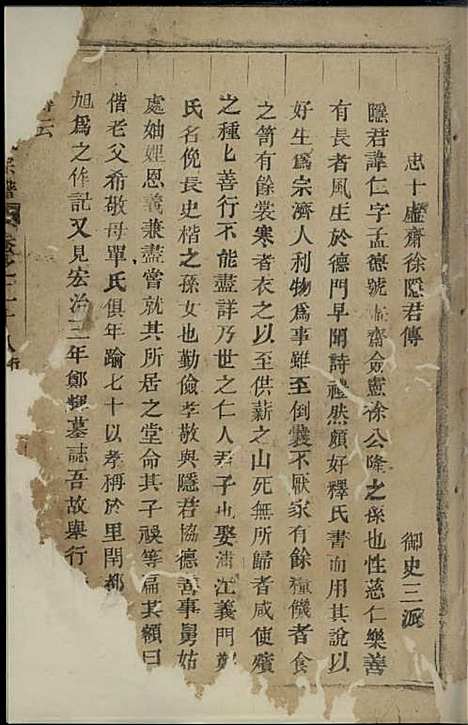 忠十虛齋徐隱君傳 御史三派
隱君諱仁字孟德號虛齋僉憲徐公隆之孫也性慈仁樂善
有長者風生於德門早聞詩禮然頗好釋氏書而用其說以
好生爲宗濟人利物爲事雖至倒囊不厭家有餘糧饑者食
之笥有餘裳寒者衣之以至供薪之山死無所歸者咸使殯
之種匕善行不能盡詳乃世之仁人君子也娶浦江義門鄭
氏名俛長史楷之孫女也勤儉孝敬與隱君協德善事舅姑
處妯娌恩義兼盡嘗就其所居之堂命其子禄等扁其額曰
偕老父希敬母單氏俱年踰七十以孝稱於里閈都
旭爲之作記又見宏治三年鄭 墓誌吾故舉行
云
宗譜